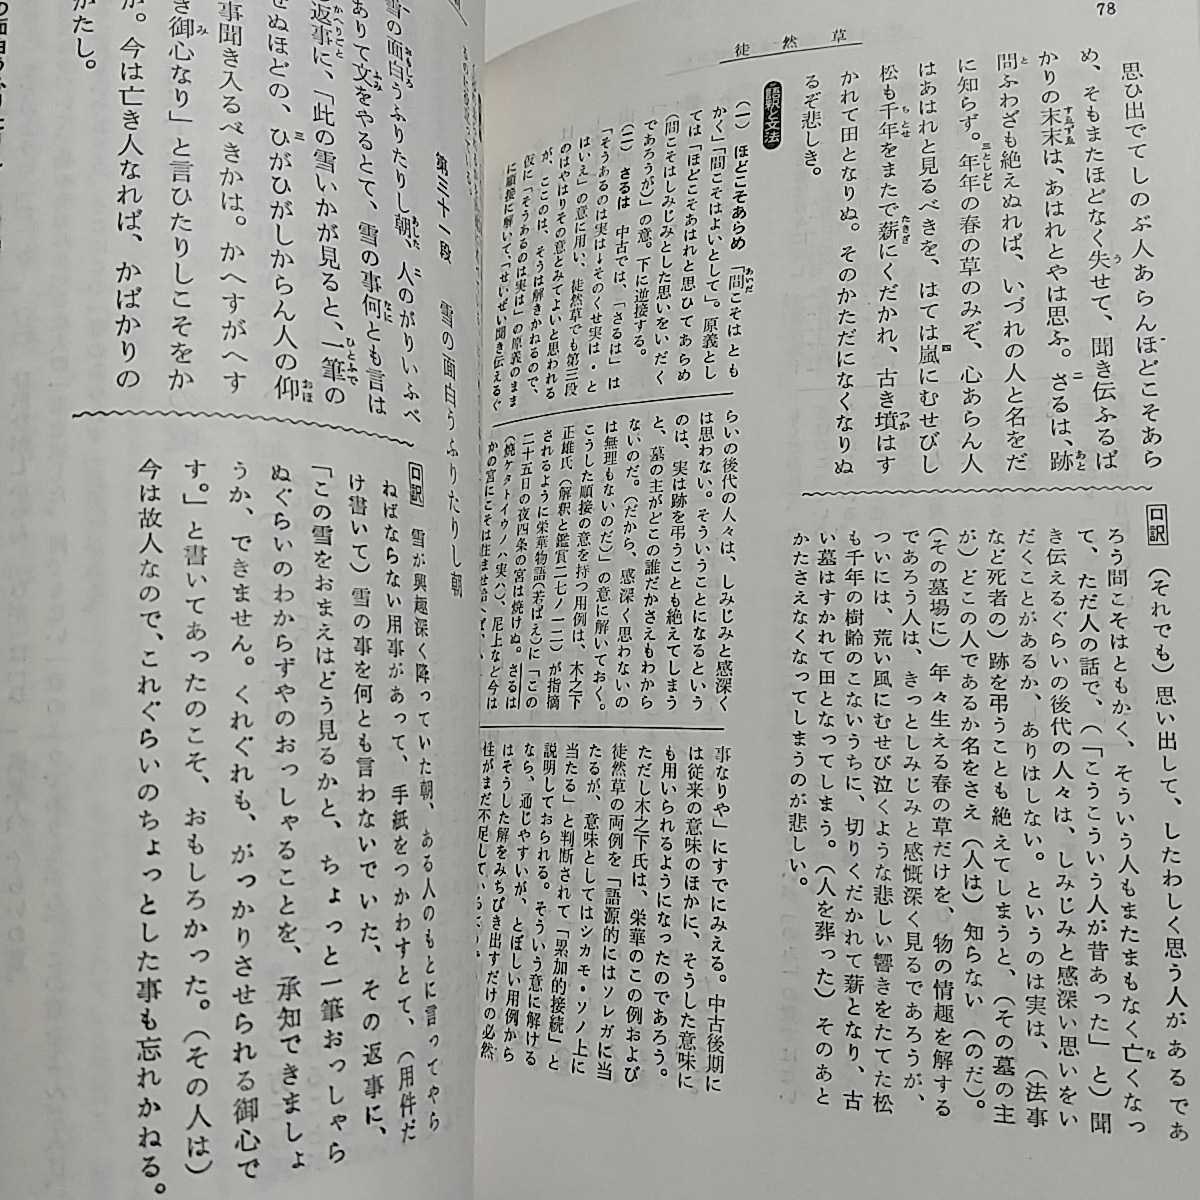 78
徒然草
思ひ出でてしのぶ人あらんほどこそあら
め、そもまたほどなく失せて、聞き伝ふるば
かりの末末は、あはれとやは思ふ。さるは、跡
問ふわざも絶えぬれば、いづれの人と名をだ
に知らず。年年の春の草のみぞ、心あらん人
はあはれと見るべきを、はては嵐にむせびし
松も千年をまたで薪にくだかれ、古き墳はす
かれて田となりぬ。そのかただになくなりぬ
るぞ悲しき。
口訳 (それでも)思い出して、したわしく思う人があるであ
ろう間こそはともかく、そういう人もまたまもなく亡くなっ
て、ただ人の話で、(「こうこういう人が昔あった」と)聞
き伝えるぐらいの後代の人々は、しみじみと感深い思いをい
だくことがあるか、ありはしない。というのは実は、(法事
など死者の)跡を弔うことも絶えてしまうと、(その墓の主
が)どこの人であるか名をさえ(人は)知らない(のだ)。
(その墓場に)年々生える春の草だけを、物の情趣を解する
であろう人は、きっとしみじみと感慨深く見るであろうが、
ついには、荒い風にむせび泣くような悲しい響きをたてた松
も千年の樹齢のこないうちに、切りくだかれて薪となり、古
い墓はすかれて田となってしまう。(人を葬った)そのあと
かたさえなくなってしまうのが悲しい。
語釈と文法
(一) ほどこそあらめ 「間こそはとも
かく」「間こそはよいとして」。原義とし
ては「ほどこそあはれと思ひてあらめ
(間こそはしみじみとした思いをいだく
であろうが)」の意。下に逆接する。
(二) さるは 中古では、「さるは」は
「そうあるのは実は→そのくせ実は・と
はいえ」の意に用い、徒然草でも第三段
のはやはりその意とみてよいと思われる
が、ここのは、そうは解きかねるので、
仮に「そうあるのは実は」の原義のまま
に順接に解いて、「せいぜい聞き伝えるぐ
らいの後代の人々は、しみじみと感深く
は思わない。そういうことになるという
のは、実は跡を弔うことも絶えてしまう
と、墓の主がどこの誰だかさえもわから
ないのだ。(だから、感深く思わないの
は無理もないのだ)」の意に解いておく。
こうした順接の意を持つ用例は、木之下
正雄氏(解釈と鑑賞二七ノ一二)が指摘
されるように栄華物語(若ばえ)に「この
二十五日の夜四条の宮は焼けぬ。さるは
(焼ケタトイウノハ実ハ)、尼上など今は
事なりや」にすでにみえる。中古後期に
は従来の意味のほかに、そうした意味に
も用いられるようになったのであろう。
ただし木之下氏は、栄華のこの例および
徒然草の両例を「語源的にはソレガに当
たるが、意味としてはシカモ・ソノ上に
当たる」と判断されて「累加的接続」と
説明しておられる。そういう意に解ける
なら、通じやすいが、とぼしい用例から
はそうした解をみちびき出すだけの必然
第三十一段 雪の面白うふりたりし朝
雪の面白うふりたりし朝、人のがりいふべ
ありて文をやるとて、雪の事何とも言は
返事に、「此の雪いかが見ると、一筆の
せぬほどの、ひがひがしからん人の仰
事聞き入るべきかは。かへすがへす
き御心なり」と言ひたりしこそをか
か。今は亡き人なれば、かばかりの
がたし。
口訳 雪が興趣深く降っていた朝、ある人のもとに言ってやら
ねばならない用事があって、手紙をつかわすとて、(用件だ
け書いて)雪の事を何とも言わないでいた、その返事に、
「この雪をおまえはどう見るかと、ちょっと一筆おっしゃら
ぬぐらいのわからずやのおっしゃることを、承知できましょ
うか、できません。くれぐれも、がっかりさせられる御心で
す。」と書いてあったのこそ、おもしろかった。(その人は)
今は故人なので、これぐらいのちょっとした事も忘れかねる。